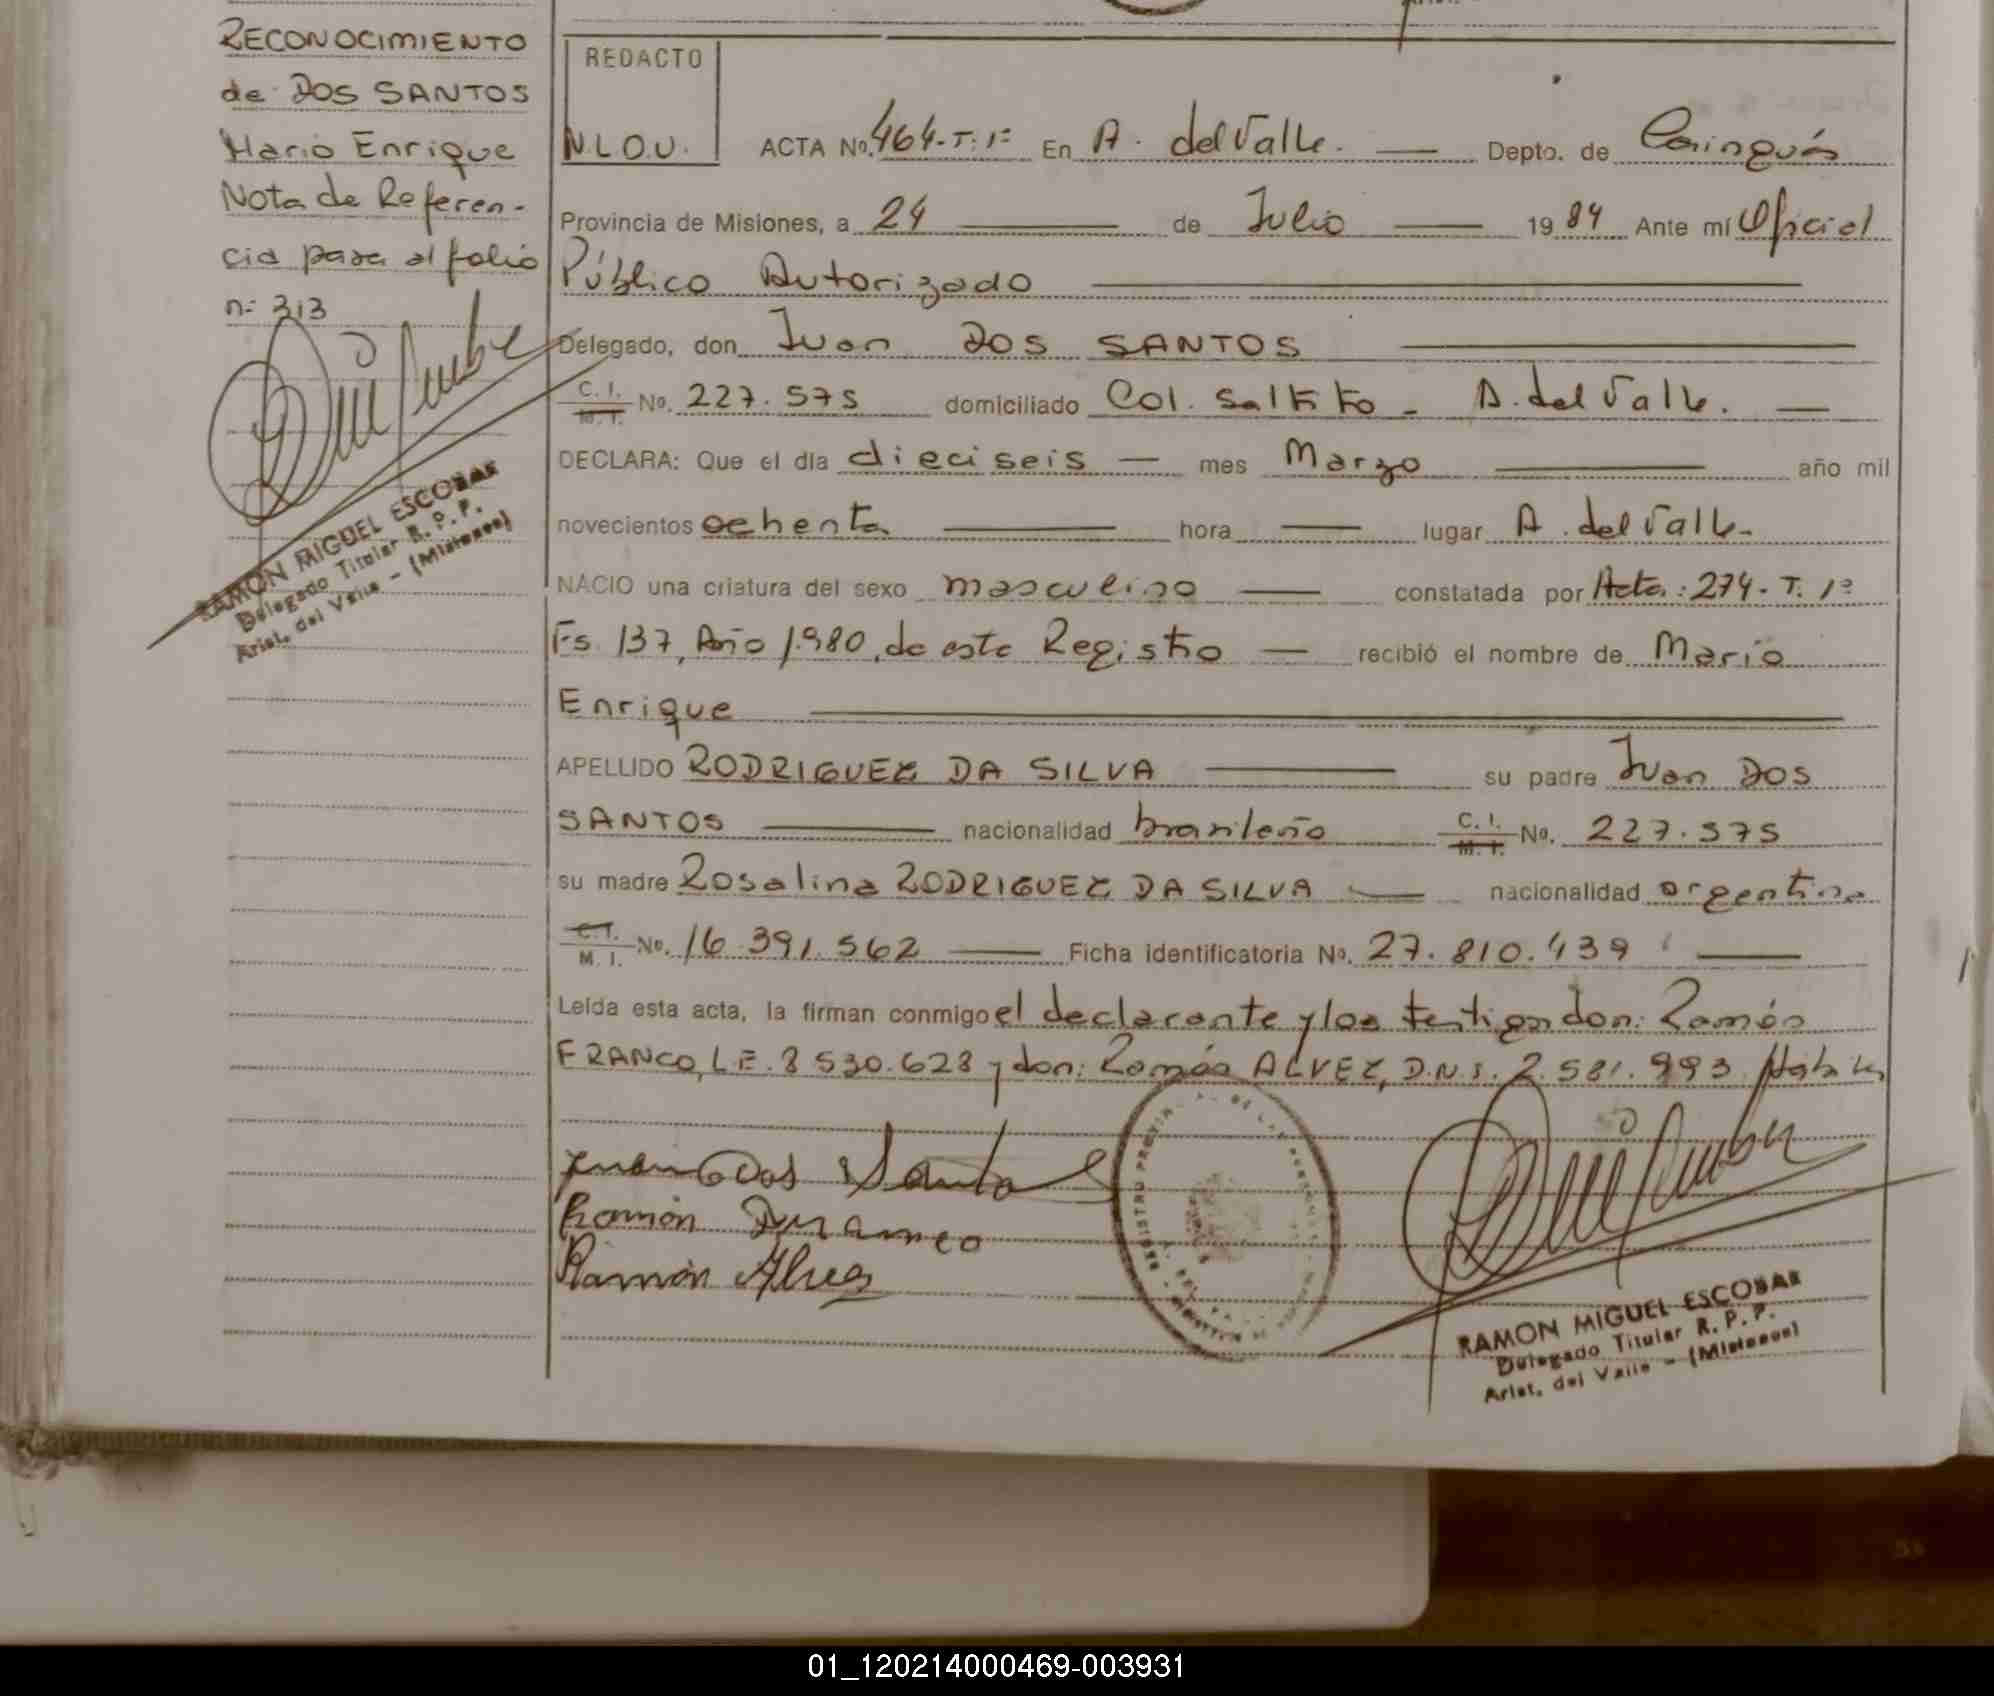 RECONOCIMIENTO
de DOS SANTOS
Mario Enrique
Nota de Referen-
cia para al folio
n: 313
RAMON MIGUEL ESCOBAR
Delegado Titular R. P. P.
Arist. del Valle - (Misiones)
REDACTO
N.L.O.U.
ACTA No. 464-T: 1º En A. del Valle. — Depto. de Cainguás
Provincia de Misiones, a 24 — de Julio — 1984 Ante mí Oficial
Público Autorizado
Delegado, don Juan DOS SANTOS
C. I. M. I. No. 227.575 domiciliado Col. Saltito - A. del Valle. —
DECLARA: Que el día dieciseis — mes Marzo — año mil
novecientos ochenta — hora — lugar A. del Valle-
NACIO una criatura del sexo masculino — constatada por Acta: 274-T. 1º
Fs. 137, Año 1.980, de este Registro — recibió el nombre de Mario
Enrique
APELLIDO RODRIGUEZ DA SILVA — su padre Juan DOS
SANTOS — nacionalidad brasileño C. I. M. I. No. 227.575
su madre Rosalina RODRIGUEZ DA SILVA — nacionalidad argentina
C. I. M. I. No. 16.391.562 — Ficha identificatoria No. 27.810.439 —
Leída esta acta, la firman conmigo el declarante y los testigos don: Ramón
FRANCO, L.E. 8 530.628 y don: Ramón ALVEZ, D.N.I. 2.581.993 Hábiles
Juan Dos Santos
Ramón Franco
Ramón Alvez
REGISTRO PROVIN
RAMON MIGUEL ESCOBAR
Delegado Titular R. P. P.
Arist. del Valle - (Misiones)
01_120214000469-003931